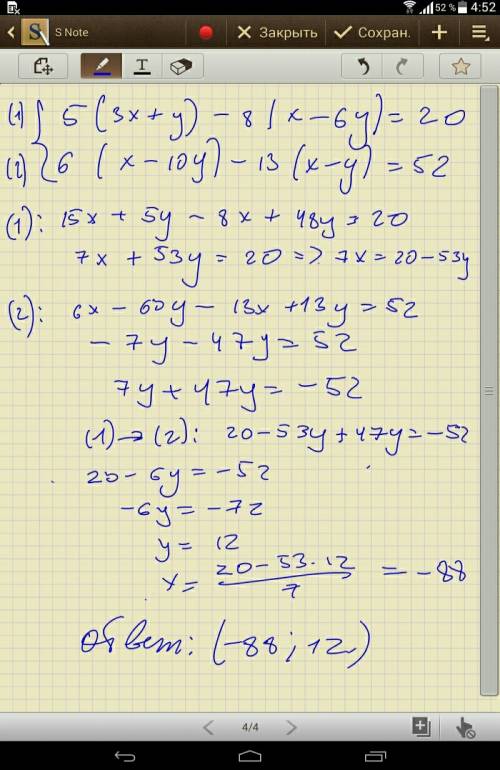 52 % 4:52
S Note Закрыть Сохран.
(1) { 5 (3x + y) - 8 (x - 6y) = 20
(2) { 6 (x - 10y) - 13 (x - y) = 52
(1): 15x + 5y - 8x + 48y = 20
7x + 53y = 20 => 7x = 20 - 53y
(2): 6x - 60y - 13x + 13y = 52
- 7y - 47y = 52
7y + 47y = - 52
(1) → (2): 20 - 53y + 47y = - 52
20 - 6y = - 52
- 6y = - 72
y = 12
x = (20 - 53 · 12) / 7 = - 88
ответ: (-88 ; 12)
4/4